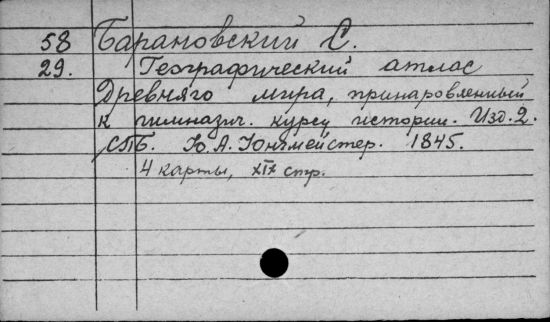 58 Барановский С.
29. Географический атлас
Древняго мира, приноровленный
к гимназич. курсу истории. Изд. 2.
СПБ. Ю. А. Юнгмейстер. 1845.
4 карты, XIX стр.